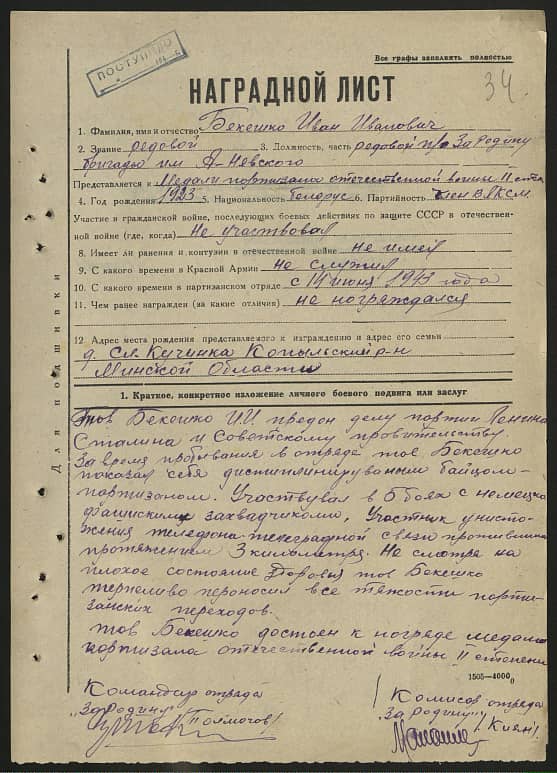 ПОСТУПИЛО
Все графы заполнять полностью
34.
НАГРАДНОЙ ЛИСТ
1. Фамилия, имя и отчество Бекешко Иван Иванович
2. Звание редовой 3. Должность, часть редовой п/о За Родину
бригады им А-Невского
Представляется к Медали портизана отечественной войны II степ
4. Год рождения 1923 5. Национальность белорус 6. Партийность член ВЛКСМ
Участие в гражданской войне, последующих боевых действиях по защите СССР в отечествен-
ной войне (где, когда) Не участвовал
8. Имеет ли ранения и контузии в отечественной войне не имел
9. С какого времени в Красной Армии не служил
10. С какого времени в партизанском отряде с 14 июня 1943 года
11. Чем ранее награжден (за какие отличия) не ногрождался
12 Адрес места рождения представляемого к награждению и адрес его семьи
д. Сл. Кучинка Копыльский р-н
Минской Области
Для подшивки
1. Краткое, конкретное изложение личного боевого подвига или заслуг
Тов Бекешко И.И. предон делу портии Ленина
Сталина и Советскому провительству.
За время пробывания в отряде тов. Бекешко
показал себя дисциплинированым байцом-
портизоном. Участвувал в 5 боях с немецко
фашискими захвадчикоми, Участник унисто-
жения телефона-телеграфной связи противника
протяжением 3 километра. Не смотря на
плохое состояние здоровья тов Бекешко
терпеливо переносил все тяжости порти-
занских переходов.
тов Бекешко достоен к ногроде медали
портизана отечественной войны II степени
1505—4000
Командир отряда
"За Родину"
/Толмочов/
Комисов отряда
"За родину"
/Ким/